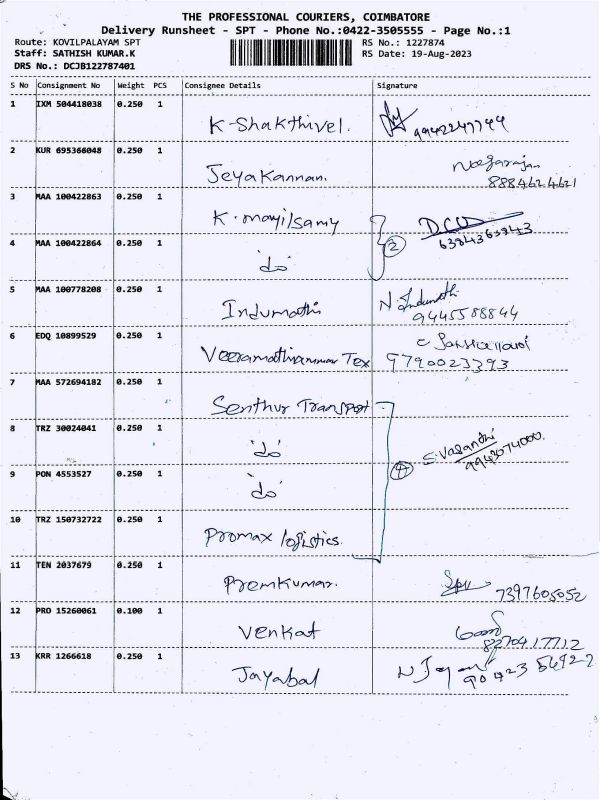 THE PROFESSIONAL COURIERS, COIMBATORE
Delivery Runsheet - SPT - Phone No.:0422-3505555 - Page No.:1
Route: KOVILPALAYAM SPT RS No.: 1227874
Staff: SATHISH KUMAR.K RS Date: 19-Aug-2023
DRS No.: DCJB122787401
S No Consignment No Weight PCS Consignee Details Signature
1 IXM 504418038 0.250 1 K-Shakthivel. 9942247744
2 KUR 695366048 0.250 1 Jeyakannan. Nagarajan
8884624621
3 MAA 100422863 0.250 1 K. mayilsamy
4 MAA 100422864 0.250 1 "do" 2 6384363843
5 MAA 100778208 0.250 1 Indumathi N. Indumathi
9445588844
6 EDQ 10899529 0.250 1 Veeramathiamman Tex 9790023393
7 MAA 572694182 0.250 1 Senthur Transport
8 TRZ 30024041 0.250 1 "do" S. Vasandhi
9943074000
9 PON 4553527 0.250 1 "do" 4
10 TRZ 150732722 0.250 1 Promax logistics.
11 TEN 2037679 0.250 1 Premkumar. 7397605052
12 PRO 15260061 0.100 1 Venkat 8270417712
13 KRR 1266618 0.250 1 Jayabal